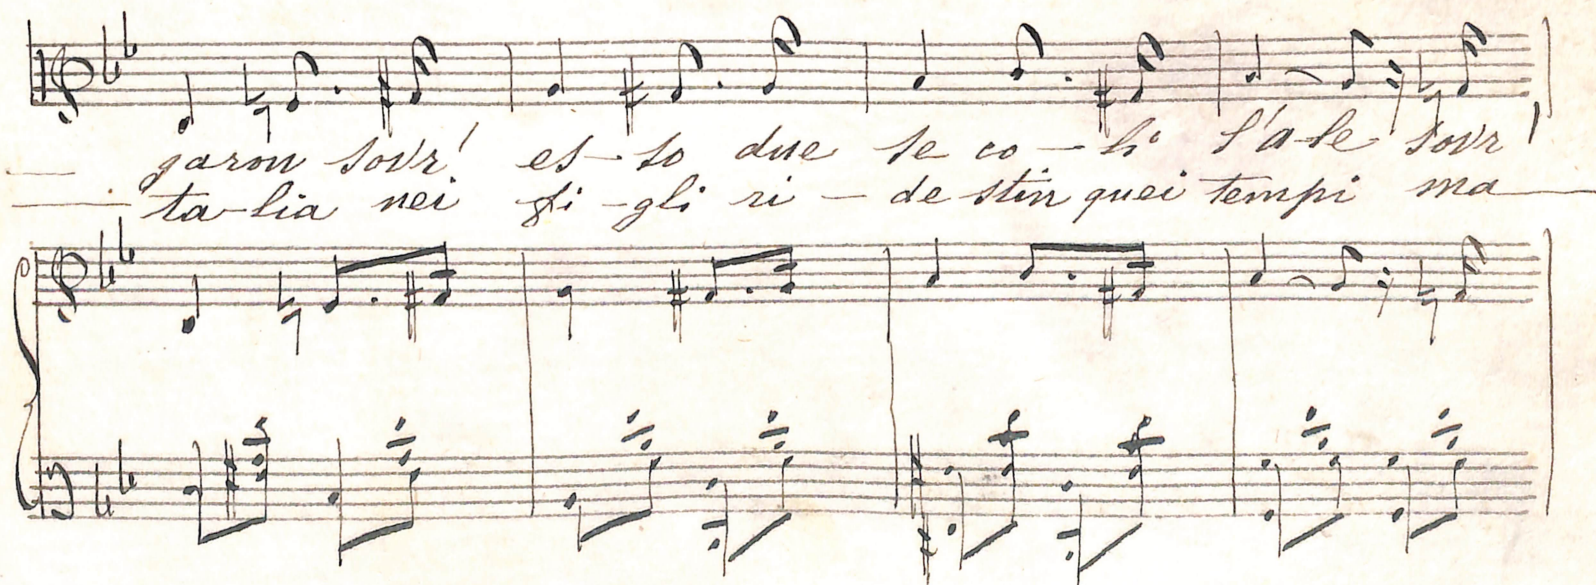 garon sovr' es-so due se co-li l'a-le sovr'
ta-lia nei fi-gli ri-de stin quei tempi ma